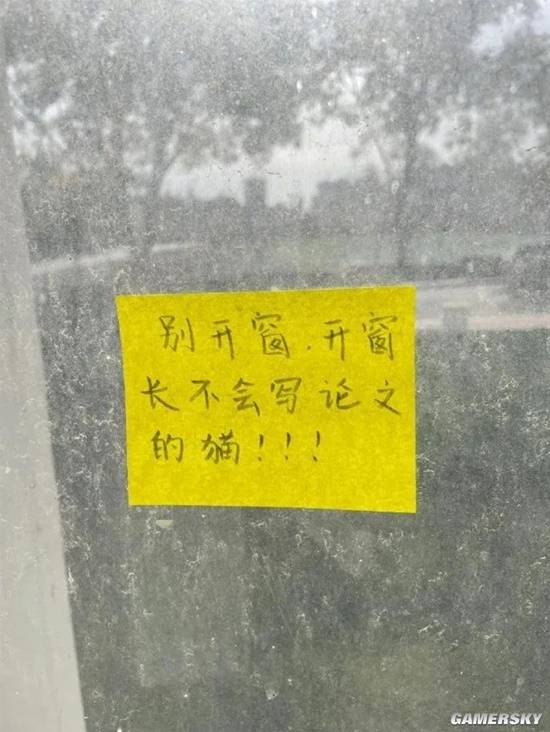 别开窗.开窗
长不会写论文
的猫!!!
GAMERSKY